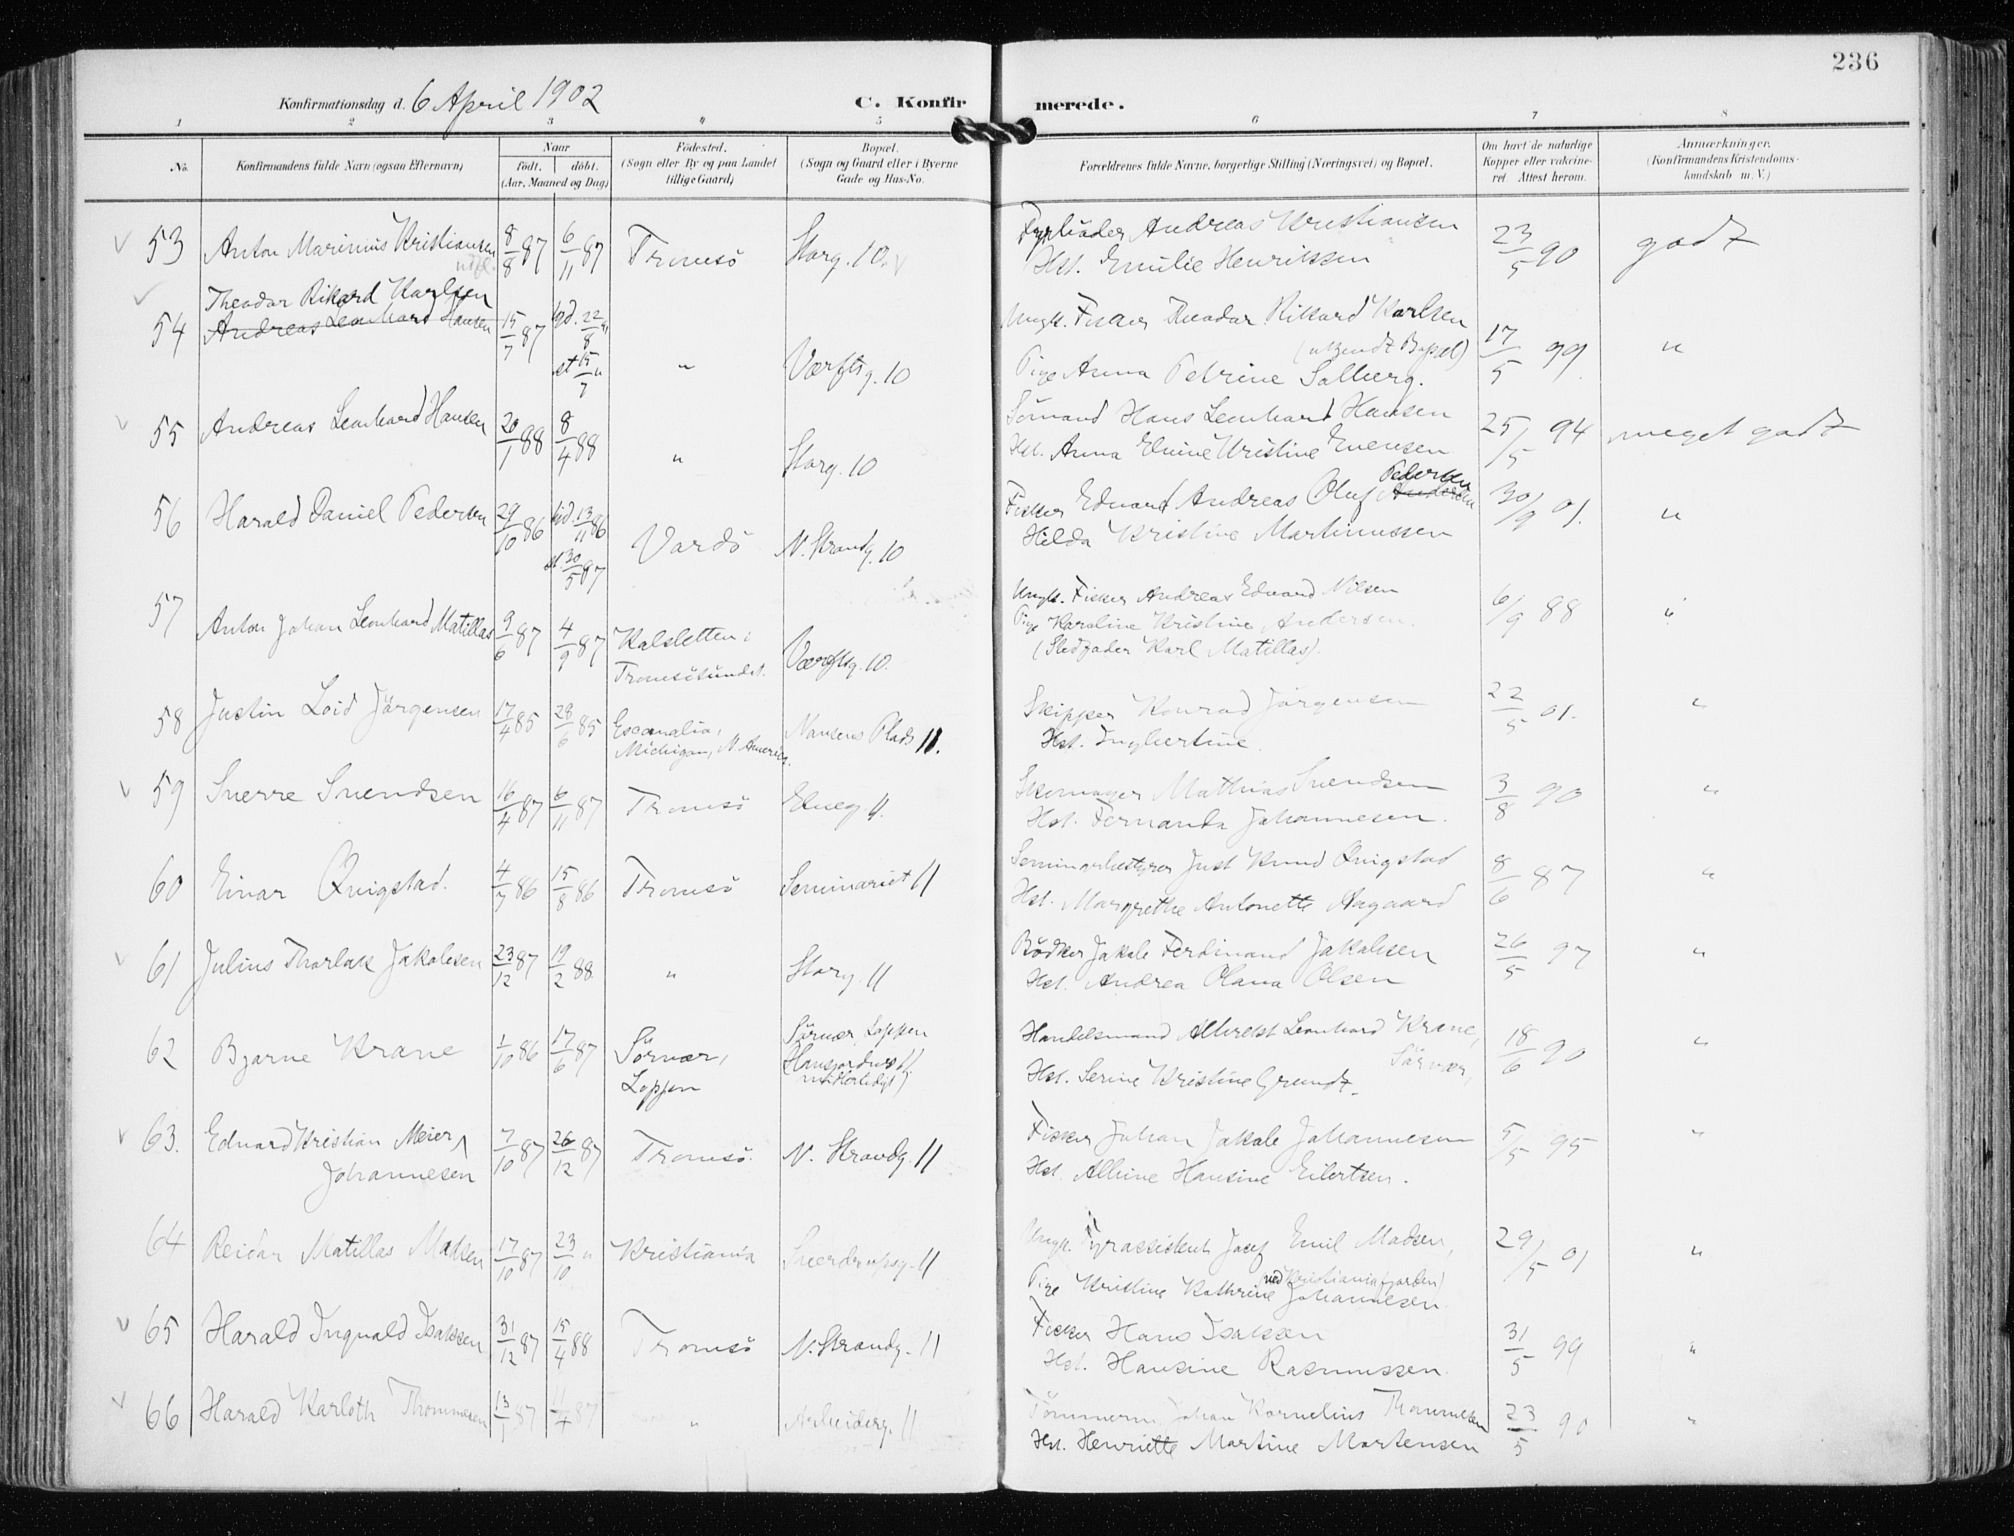 236
Konfirmationsdag d. 6 April 1902
C. Konfirmerede.
1 2 3 4 5 6 7 8
No.
Konfirmandens fulde Navn (ogsaa Efternavn)
Naar
födt. döbt.
(Aar, Maaned og Dag)
Födested.
(Sogn eller By og paa Landet
tillige Gaard)
Bopæl.
(Sogn og Gaard eller i Byerne
Gade og Hus-No.
Forældrenes fulde Navne, borgerlige Stilling (Næringsvei) og Bopæl.
Om havt de naturlige
Kopper eller vakcine-
ret. Attest herom.
Anmærkninger.
(Konfirmandens Kristendoms-
kundskab m. V.)
53 Anton Marinius Kristiansen 8/8 87 6/11 87 Tromsö Storg. 10. Andreas Kristiansen 23/5 90 godt
Hst. Emilie Henriksen
Theodor Rikard Karlsen
54 Andreas Leonhard Hansen 15/7 87 22/8 " Ungk. Fisker Theodor Rikard Karlsen
(ukjendt Bopæl) 17/5 99 "
st 15/7 " " Værftsg. 10 Pige Anna Petrine Solberg.
55 Andreas Leonhard Hansen 20/1 88 8/4 88 " Storg. 10 Sömand Hans Leonhard Hansen 25/5 94 meget godt
Hst. Anna Kristine Evensen
Pedersen
56 Harald Daniel Pedersen 29/10 86 13/11 86 Vardö N. Strandg. 10 Fisker Edvard Andreas Oluf Andersen 30/9 01. "
st. 30/5 87 Hilda Kristine Martinussen
57 Anton Johan Leonhard Matillas 9/6 87 4/9 87 Kalsletten i Værftsg. 10. Ungk. Fisker Andreas Edvard Nilsen 6/9 88 "
Tromsösundet. Pige Karoline Kristine Andersen.
(Stedfader Karl Matillas).
58 Justin Loid Jörgensen 17/4 85 28/6 85 Escanalia, Nansens Plads 11. Skipper Konrad Jörgensen 22/5 01. "
Michigan, N. America. Hst. Ingbertine.
59 Sverre Svendsen 16/4 87 6/11 87 Tromsö Elveg 11. Skomager Mathias Svendsen 3/8 90 "
Hst. Fernanda Johannesen.
60 Einar Qvigstad. 4/7 86 15/8 86 Tromsö Seminariet 11 Seminarbestyrer Just Knud Qvigstad 8/6 87 "
Hst. Margrethe Antonette Aagaard
61 Julius Thorlak Jakobsen 23/12 87 19/2 88 " Storg. 11 Bödker Jakob Ferdinand Jakobsen 26/5 97 "
Hst. Andrea Olana Olsen
62 Bjarne Krane 1/10 86 17/6 87 Sörvær, Sörvær, Loppen Handelsmand Albrekt Leonhard Krane, 18/6 90 "
Loppen Sörvær,
Hst. Serine Kristine Grundt.
63. Edvard Kristian Meier 7/10 87 26/12 87 Tromsö. N. Strandg. 11 Fisker Johan Jakob Johannesen 5/5 95 "
Johannesen Hst. Albine Hansine Eilertsen.
64 Reidar Matillas Madsen 17/10 87 23/10 " Kristiania Sverdrupsg. 11 Ungk. Fyrassistent Josef Emil Madsen, 29/5 01 "
ved Kristianiafjorden)
Pige Kristine Kathrine Johannesen.
65 Harald Ingvald Isaksen 31/12 87 15/4 88 Tromsö N. Strandg. 11 Fisker Hans Isaksen 31/5 99 "
Hst. Hansine Rasmussen.
66 Harald Karloth Thommesen 13/1 87 11/4 87 " Arbeiderg. 11 Tömmerm. Johan Kornelius Thommesen 23/5 90 "
Hst. Henriette Martine Mortensen